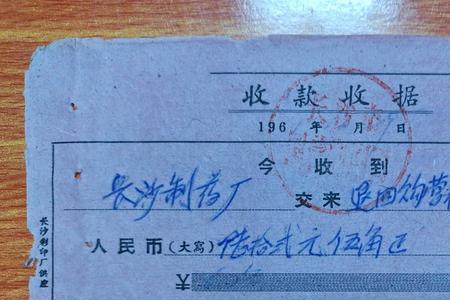 收款收据
196 年 月 日
今收到
长沙制药厂 交来 退回购营
人民币(大寫) 陆拾贰元伍角正
¥
长沙制印厂供应